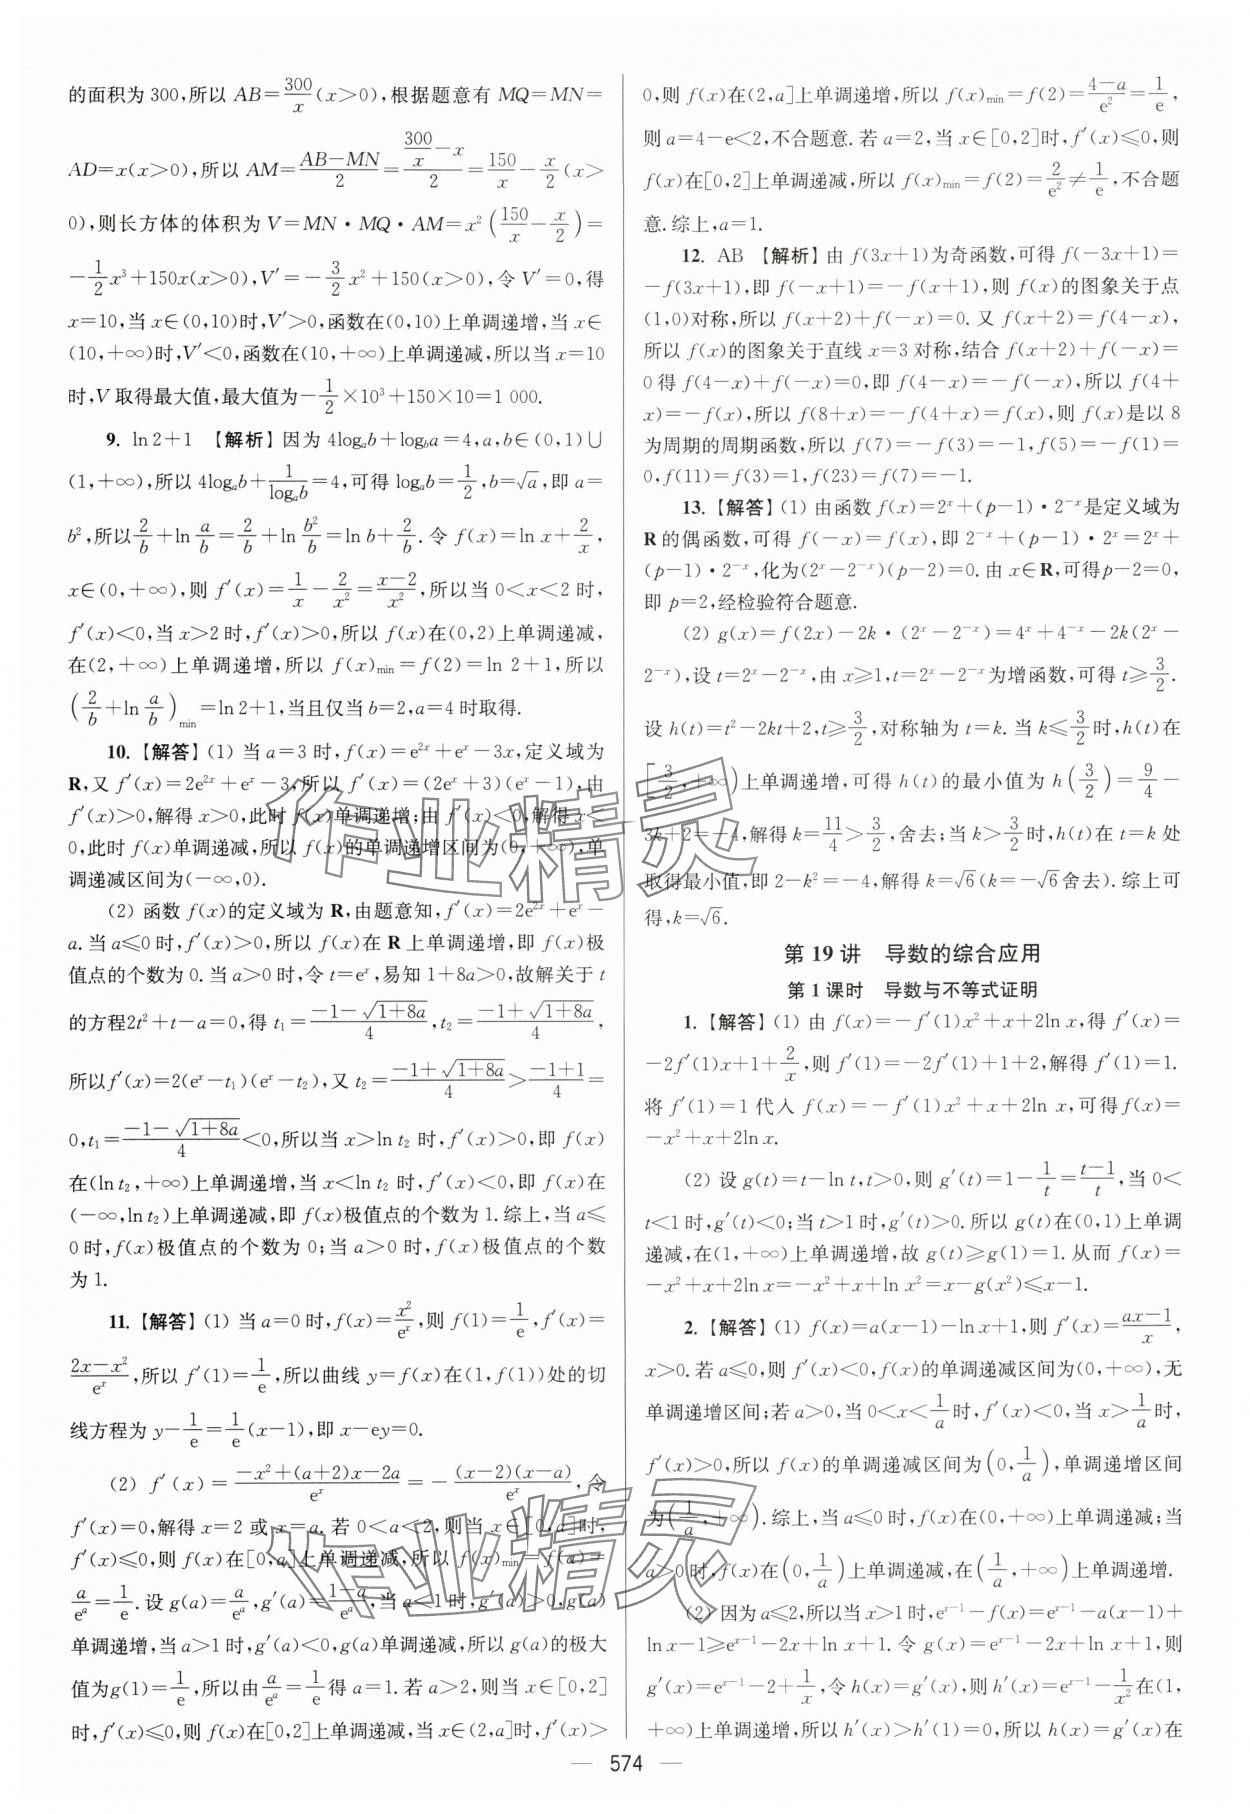 的面积为 300,所以 AB=300/x(x>0),根据题意有 MQ=MN=
AD=x(x>0),所以 AM=(AB-MN)/2=(300/x-x)/2=150/x-x/2(x>
0),则长方体的体积为 V=MN·MQ·AM=x²(150/x-x/2)=
-1/2x³+150x(x>0),V′=-3/2x²+150(x>0),令 V′=0,得
x=10,当 x∈(0,10)时,V′>0,函数在(0,10)上单调递增,当 x∈
(10,+∞)时,V′<0,函数在(10,+∞)上单调递减,所以当 x=10
时,V 取得最大值,最大值为-1/2×10³+150×10=1 000.
9. ln 2+1 【解析】因为 4logₐb+log_b a=4,a,b∈(0,1)∪
(1,+∞),所以 4logₐb+1/logₐb=4,可得 logₐb=1/2,b=√a,即 a=
b²,所以2/b+ln a/b=2/b+ln b²/b=ln b+2/b.令 f(x)=ln x+2/x,
x∈(0,+∞),则 f′(x)=1/x-2/x²=(x-2)/x²,所以当 0<x<2 时,
f′(x)<0,当 x>2 时,f′(x)>0,所以 f(x)在(0,2)上单调递减,
在(2,+∞)上单调递增,所以 f(x)min=f(2)=ln 2+1,所以
(2/b+ln a/b)min=ln 2+1,当且仅当 b=2,a=4 时取得.
10.【解答】(1) 当 a=3 时,f(x)=e²ˣ+eˣ-3x,定义域为
R,又 f′(x)=2e²ˣ+eˣ-3,所以 f′(x)=(2eˣ+3)(eˣ-1),由
f′(x)>0,解得 x>0,此时 f(x)单调递增;由 f′(x)<0,解得 x<
0,此时 f(x)单调递减,所以 f(x)的单调递增区间为(0,+∞),单
调递减区间为(-∞,0).
(2) 函数 f(x)的定义域为 R,由题意知,f′(x)=2e²ˣ+eˣ-
a.当 a≤0 时,f′(x)>0,所以 f(x)在 R 上单调递增,即 f(x)极
值点的个数为 0.当 a>0 时,令 t=eˣ,易知 1+8a>0,故解关于 t
的方程2t²+t-a=0,得 t₁=(-1-√(1+8a))/4,t₂=(-1+√(1+8a))/4,
所以f′(x)=2(eˣ-t₁)(eˣ-t₂),又 t₂=(-1+√(1+8a))/4>(-1+1)/4=
0,t₁=(-1-√(1+8a))/4<0,所以当 x>ln t₂ 时,f′(x)>0,即 f(x)
在(ln t₂,+∞)上单调递增,当 x<ln t₂ 时,f′(x)<0,即 f(x)在
(-∞,ln t₂)上单调递减,即 f(x)极值点的个数为 1.综上,当 a≤
0 时,f(x)极值点的个数为 0;当 a>0 时,f(x)极值点的个数
为 1.
11.【解答】(1) 当 a=0 时,f(x)=x²/eˣ,则 f(1)=1/e,f′(x)=
(2x-x²)/eˣ,所以 f′(1)=1/e,所以曲线 y=f(x)在(1,f(1))处的切
线方程为 y-1/e=1/e(x-1),即 x-ey=0.
(2) f′(x)=(-x²+(a+2)x-2a)/eˣ=-(x-2)(x-a)/eˣ,令
f′(x)=0,解得 x=2 或 x=a.若 0<a<2,则当 x∈[0,a]时,
f′(x)≤0,则 f(x)在[0,a]上单调递减,所以 f(x)min=f(a)=
a/eᵃ=1/e.设 g(a)=a/eᵃ,g′(a)=(1-a)/eᵃ,当 a<1 时,g′(a)>0,g(a)
单调递增,当 a>1 时,g′(a)<0,g(a)单调递减,所以 g(a)的极大
值为g(1)=1/e,所以由a/eᵃ=1/e得 a=1.若 a>2,则当 x∈[0,2]
时,f′(x)≤0,则 f(x)在[0,2]上单调递减,当 x∈(2,a]时,f′(x)>
0,则 f(x)在(2,a]上单调递增,所以 f(x)min=f(2)=(4-a)/e²=1/e,
则 a=4-e<2,不合题意.若 a=2,当 x∈[0,2]时,f′(x)≤0,则
f(x)在[0,2]上单调递减,所以 f(x)min=f(2)=2/e²≠1/e,不合题
意.综上,a=1.
12. AB 【解析】由 f(3x+1)为奇函数,可得 f(-3x+1)=
-f(3x+1),即 f(-x+1)=-f(x+1),则 f(x)的图象关于点
(1,0)对称,所以 f(x+2)+f(-x)=0.又 f(x+2)=f(4-x),
所以 f(x)的图象关于直线 x=3 对称,结合 f(x+2)+f(-x)=
0得 f(4-x)+f(-x)=0,即 f(4-x)=-f(-x),所以 f(4+
x)=-f(x),所以 f(8+x)=-f(4+x)=f(x),则 f(x)是以 8
为周期的周期函数,所以 f(7)=-f(3)=-1,f(5)=-f(1)=
0,f(11)=f(3)=1,f(23)=f(7)=-1.
13.【解答】(1) 由函数 f(x)=2ˣ+(p-1)·2⁻ˣ是定义域为
R 的偶函数,可得 f(-x)=f(x),即 2⁻ˣ+(p-1)·2ˣ=2ˣ+
(p-1)·2⁻ˣ,化为(2ˣ-2⁻ˣ)(p-2)=0.由 x∈R,可得p-2=0,
即 p=2,经检验符合题意.
(2) g(x)=f(2x)-2k·(2ˣ-2⁻ˣ)=4ˣ+4⁻ˣ-2k(2ˣ-
2⁻ˣ),设 t=2ˣ-2⁻ˣ,由 x≥1,t=2ˣ-2⁻ˣ为增函数,可得 t≥3/2.
设 h(t)=t²-2kt+2,t≥3/2,对称轴为 t=k.当 k≤3/2时,h(t)在
[3/2,+∞)上单调递增,可得 h(t)的最小值为 h(3/2)=9/4-
3k+2=-4,解得 k=11/4>3/2,舍去;当 k>3/2时,h(t)在 t=k 处
取得最小值,即 2-k²=-4,解得 k=√6(k=-√6舍去).综上可
得,k=√6.
第 19 讲 导数的综合应用
第 1 课时 导数与不等式证明
1.【解答】(1) 由 f(x)=-f′(1)x²+x+2ln x,得 f′(x)=
-2f′(1)x+1+2/x,则 f′(1)=-2f′(1)+1+2,解得 f′(1)=1.
将 f′(1)=1 代入 f(x)=-f′(1)x²+x+2ln x,可得 f(x)=
-x²+x+2ln x.
(2) 设 g(t)=t-ln t,t>0,则 g′(t)=1-1/t=(t-1)/t,当 0<
t<1 时,g′(t)<0;当 t>1 时,g′(t)>0.所以 g(t)在(0,1)上单调
递减,在(1,+∞)上单调递增,故 g(t)≥g(1)=1.从而 f(x)=
-x²+x+2ln x=-x²+x+ln x²=x-g(x²)≤x-1.
2.【解答】(1) f(x)=a(x-1)-ln x+1,则 f′(x)=(ax-1)/x,
x>0.若 a≤0,则 f′(x)<0,f(x)的单调递减区间为(0,+∞),无
单调递增区间;若 a>0,当 0<x<1/a时,f′(x)<0,当 x>1/a时,
f′(x)>0,所以 f(x)的单调递减区间为(0,1/a),单调递增区间
为(1/a,+∞).综上,当 a≤0 时,f(x)在(0,+∞)上单调递减;当
a>0 时,f(x)在(0,1/a)上单调递减,在(1/a,+∞)上单调递增.
(2) 因为 a≤2,所以当 x>1 时,eˣ⁻¹-f(x)=eˣ⁻¹-a(x-1)+
ln x-1≥eˣ⁻¹-2x+ln x+1.令 g(x)=eˣ⁻¹-2x+ln x+1,则
g′(x)=eˣ⁻¹-2+1/x,令 h(x)=g′(x),则 h′(x)=eˣ⁻¹-1/x²在(1,
+∞)上单调递增,所以 h′(x)>h′(1)=0,所以 h(x)=g′(x)在
— 574 —
作业精灵
作业精灵